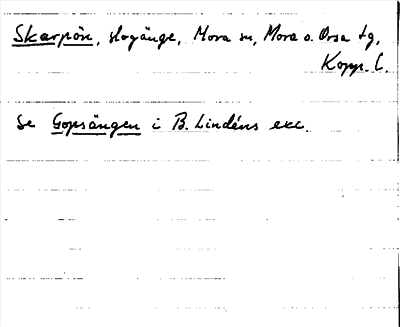 Skarpön, slogänge, Mora sn, Mora o. Orsa tg,
Kopp. l.
Se Gopsängen i B. Lindéns exc.